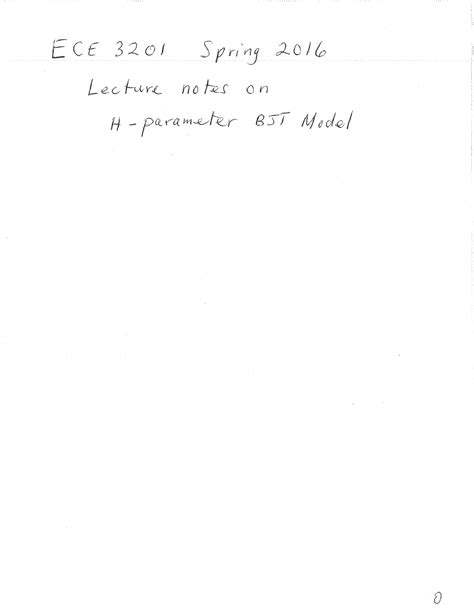 ECE 3201 Spring 2016
Lecture notes on
H-parameter BJT Model
0